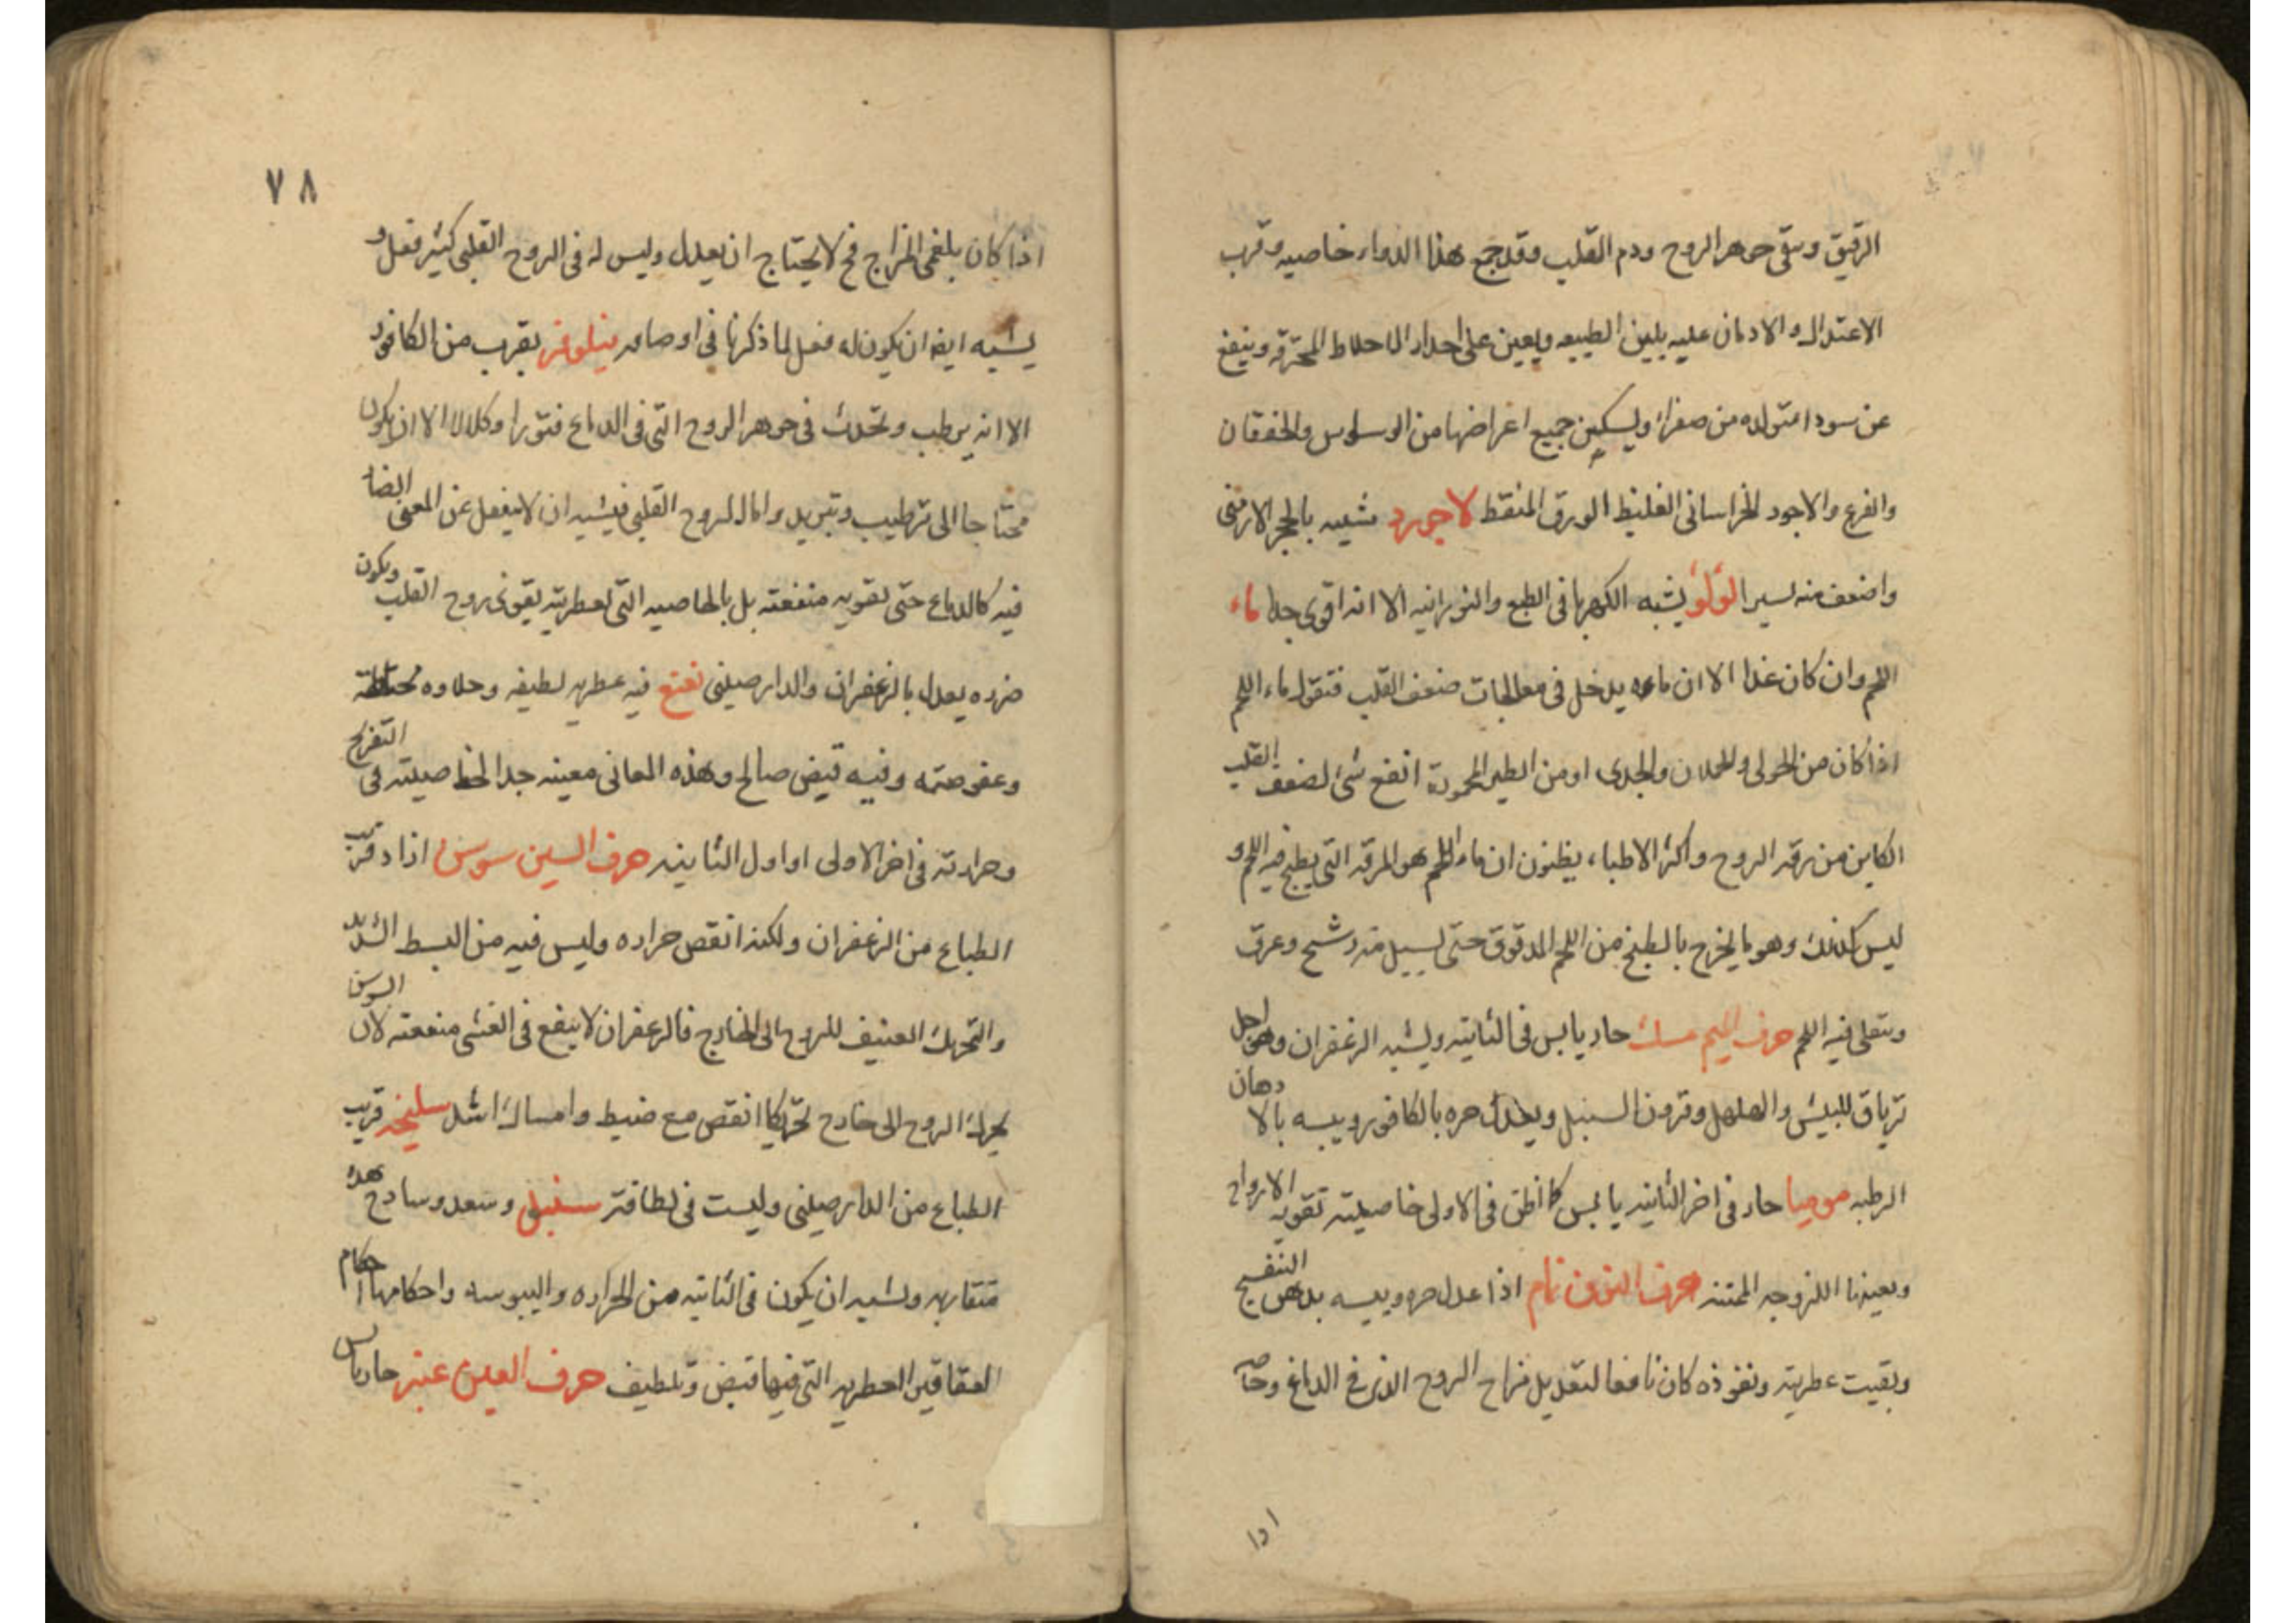 الرقيق وينقى جوهر الروح ودم القلب وقد جمع هذا الدواء خاصيه وقرب
الاعتدال والادمان عليه يلين الطبيعه ويعين على احدار الاخلاط المحترقه وينفع
عن سودا متولده من صفراء ويسكن جميع اعراضها من الوسواس والخفقان
والفزع والاجود الخراسانى الغليظ الورق المنقط لاجورد شبيه بالحجر الارمنى
واضعف منه يسيرا لؤلؤ يشبه الكهربا فى الطبع والنورانيه الا انه اقوى جدا ماء
اللحم وان كان غذا الا ان ماءه يدخل فى معالجات ضعف القلب فنقول ماء اللحم
اذا كان من الحولى والحملان والجدى او من الطير المحمودة انفع شئ لضعف القلب
الكاين من رقه الروح واكثر الاطباء يظنون ان ماء اللحم هو المرقه التى يطبخ فيه اللحم و
ليس كذلك وهو ما يخرج بالطبخ من اللحم المدقوق حتى يسيل منه رشح وعرق
ويتقلى فيه اللحم حرف الميم مسك حار يابس فى الثانيه ويشبه الزعفران وهو اجل
ترياق للبيش والهلهل وقرون السنبل ويعدل حره بالكافور ويبسه بالا دهان
الرطبه موميا حار فى اخر الثانيه يابس كما اظن فى الاولى خاصيته تقويه الارواح
ويعينها اللزوجه المتينه حرف النون نمام اذا عدل حره ويبسه بدهن البنفسج
وبقيت عطريته ونفوذه كان نافعا لتعديل مزاج الروح الذى فى الدماغ وخاصه
اذا
٧٨
اذا كان بلغمى المزاج فح لا يحتاج ان يعدل وليس له فى الروح القلبى كثير فعل و
يشبه ايضا ان يكون له فعل لما ذكرنا فى اوصافه نيلوفر يقرب من الكافور
الا انه يرطب وتحدث فى جوهر الروح التى فى الدماغ فتورا وكلالا الا ان يكون
محتاجا الى ترطيب وتبريد واما الروح القلبى فيشبه ان لا ينفعل عن المعنى الضار
فيه كالدماغ حتى تقويه منفعته بل بالخاصيه التى لعطريته يقوى روح القلب ويكون
ضرره يعدل بالزعفران والدارصينى نعنع فيه عطريه لطيفه وحلاوه مختلطه
وعفوصته وفيه قبض صالح وهذه المعانى معينه جدا لخاصيته فى التفريح
وحرارته فى اخر الاولى او اول الثانيه حرف السين سوسن ازاد قريب
الطباع من الزعفران ولكنه انقص حراره وليس فيه من البسط الشديد
والتحريك العنيف للروح الى الخارج فالزعفران لا ينفع فى الغشى منفعته لان السوسن
يحرك الروح الى خارج تحريكا انقص مع ضبط وامساك اشد سليخه قريب
الطباع من الدارصينى وليست فى لطافته سنبل وسعد وسادج هذه
متقاربه ويشبه ان يكون فى الثانيه من الحراره واليبوسه واحكامها احكام
العقاقير العطريه التى فيها قبض وتلطيف حرف العين عنبر حار يابس